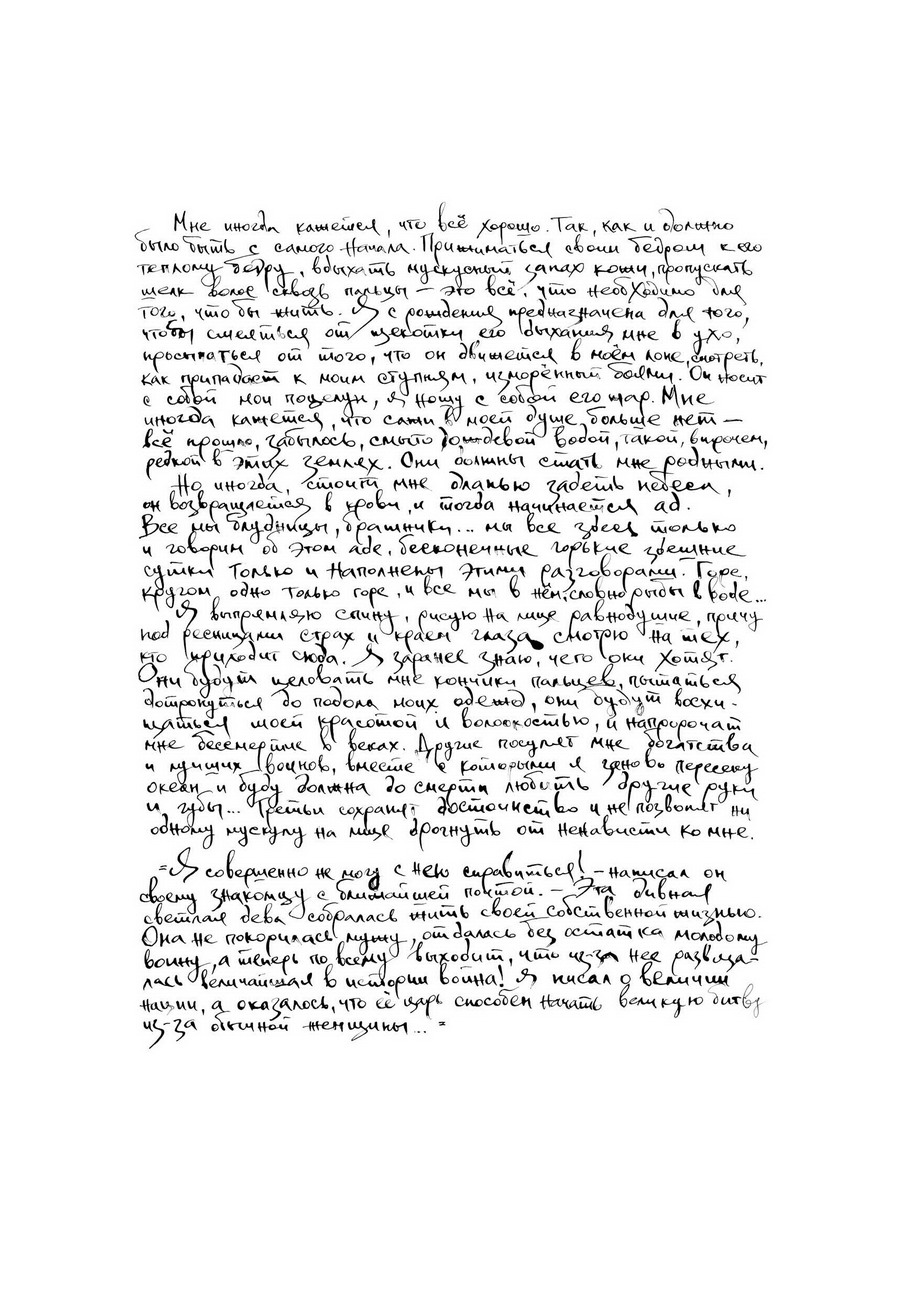 Мне иногда кажется, что всё хорошо. Так, как и должно
было быть с самого начала. Прижиматься своим бедром к его
теплому бедру, вдыхать мускусный запах кожи, пропускать
шелк волос сквозь пальцы – это всё, что необходимо для
того, что бы жить. Я с рождения предназначена для того,
чтобы смеяться от щекотки его дыхания мне в ухо,
просыпаться от того, что он движется в моём лоне, смотреть,
как припадает к моим ступням, изморённый боями. Он носит
с собой мои поцелуи, я ношу с собой его жар. Мне
иногда кажется, что сажи в моей душе больше нет –
всё прошло, забылось, смыто дождевой водой, такой, впрочем,
редкой в этих землях. Они должны стать мне родными.
Но иногда, стоит мне дланью задеть небеса,
он возвращается в крови, и тогда начинается ад.
Все мы блудницы, бражники... мы все здесь только
и говорим об этом аде, бесконечные горькие здешние
сутки только и наполнены этими разговорами. Горе,
кругом одно только горе, и все мы в нём, словно рыбы в воде...
Я выпрямляю спину, рисую на лице равнодушие, прячу
под ресницами страх и краем глаза смотрю на тех,
кто приходит сюда. Я заранее знаю, чего они хотят.
Они будут целовать мне кончики пальцев, пытаться
дотронуться до подола моих одежд, они будут восхи-
щаться моей красотой и волоокостью, и напророчат
мне бессмертие в веках. Другие посулят мне богатства
и лучших воинов, вместе с которыми я заново пересеку
океан и буду должна до смерти любить другие руки
и губы... Третьи сохранят достоинство и не позволят ни
одному мускулу на лице дрогнуть от ненависти ко мне.
"Я совершенно не могу с нею справиться! – написал он
своему знакомцу с ближайшей почтой. – Эта дивная
светлая дева собралась жить своей собственной жизнью.
Она не покорилась мужу, отдалась без остатка молодому
воину, а теперь по всему выходит, что из-за нее развяза-
лась величайшая в истории война! Я писал о величии
нации, а оказалось, что её царь способен начать великую битву
из-за обычной женщины... "